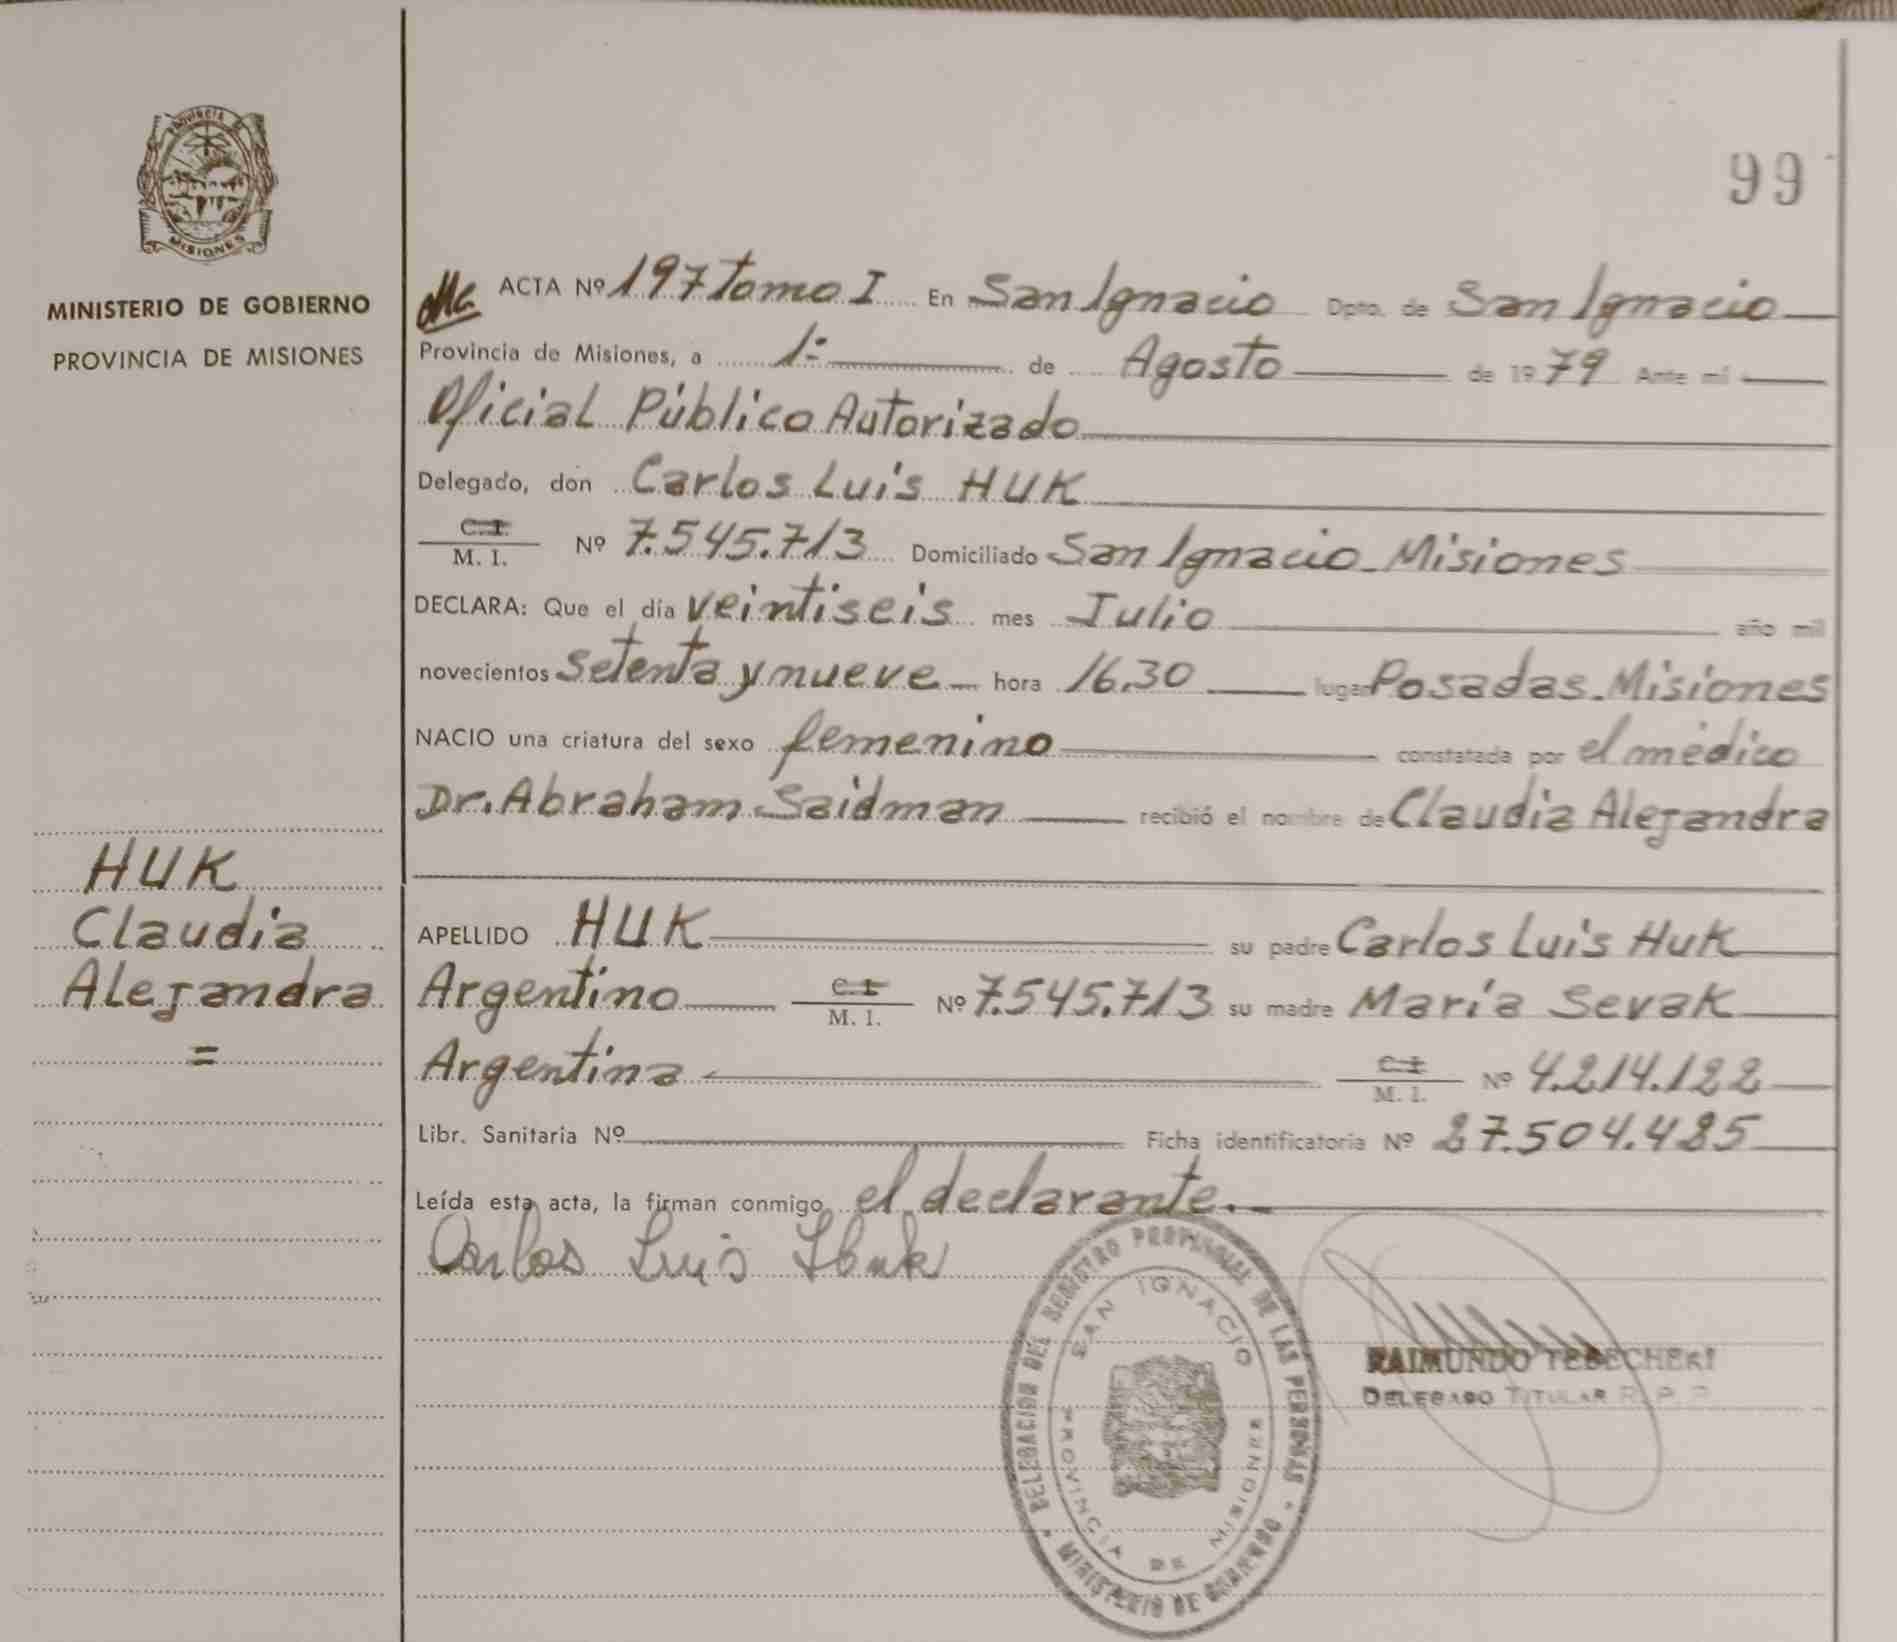 99
PROVINCIA DE
MISIONES
MINISTERIO DE GOBIERNO
PROVINCIA DE MISIONES
ACTA Nº 197 Tomo I En San Ignacio Dpto. de San Ignacio
Provincia de Misiones, a 1º de Agosto de 1979 Ante mí
Oficial Público Autorizado
Delegado, don Carlos Luis HUK
C.I.
M. I. Nº 7.545.713 Domiciliado San Ignacio - Misiones
DECLARA: Que el día veintiseis mes Julio año mil
novecientos setenta y nueve hora 16.30 lugar Posadas - Misiones
NACIO una criatura del sexo femenino constatada por el médico
Dr. Abraham Saidman recibió el nombre de Claudia Alejandra
HUK
Claudia
Alejandra
=
APELLIDO HUK su padre Carlos Luis Huk
Argentino C.I. M. I. Nº 7.545.713 su madre María Sevak
Argentina C.I. M. I. Nº 4.214.122
Libr. Sanitaria Nº Ficha identificatoria Nº 27.504.425
Leída esta acta, la firman conmigo el declarante.-
Carlos Luis Huk
DELEGACION DEL REGISTRO PROVINCIAL DE LAS PERSONAS
SAN IGNACIO
PROVINCIA DE MISIONES
MINISTERIO DE GOBIERNO
RAIMUNDO TEBECHERI
DELEGADO TITULAR R. P. P.